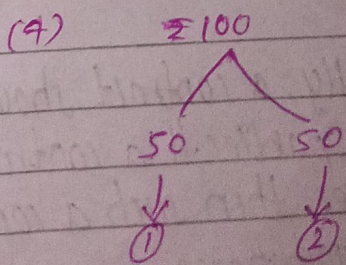 (4) ₹100
50 50
① ②